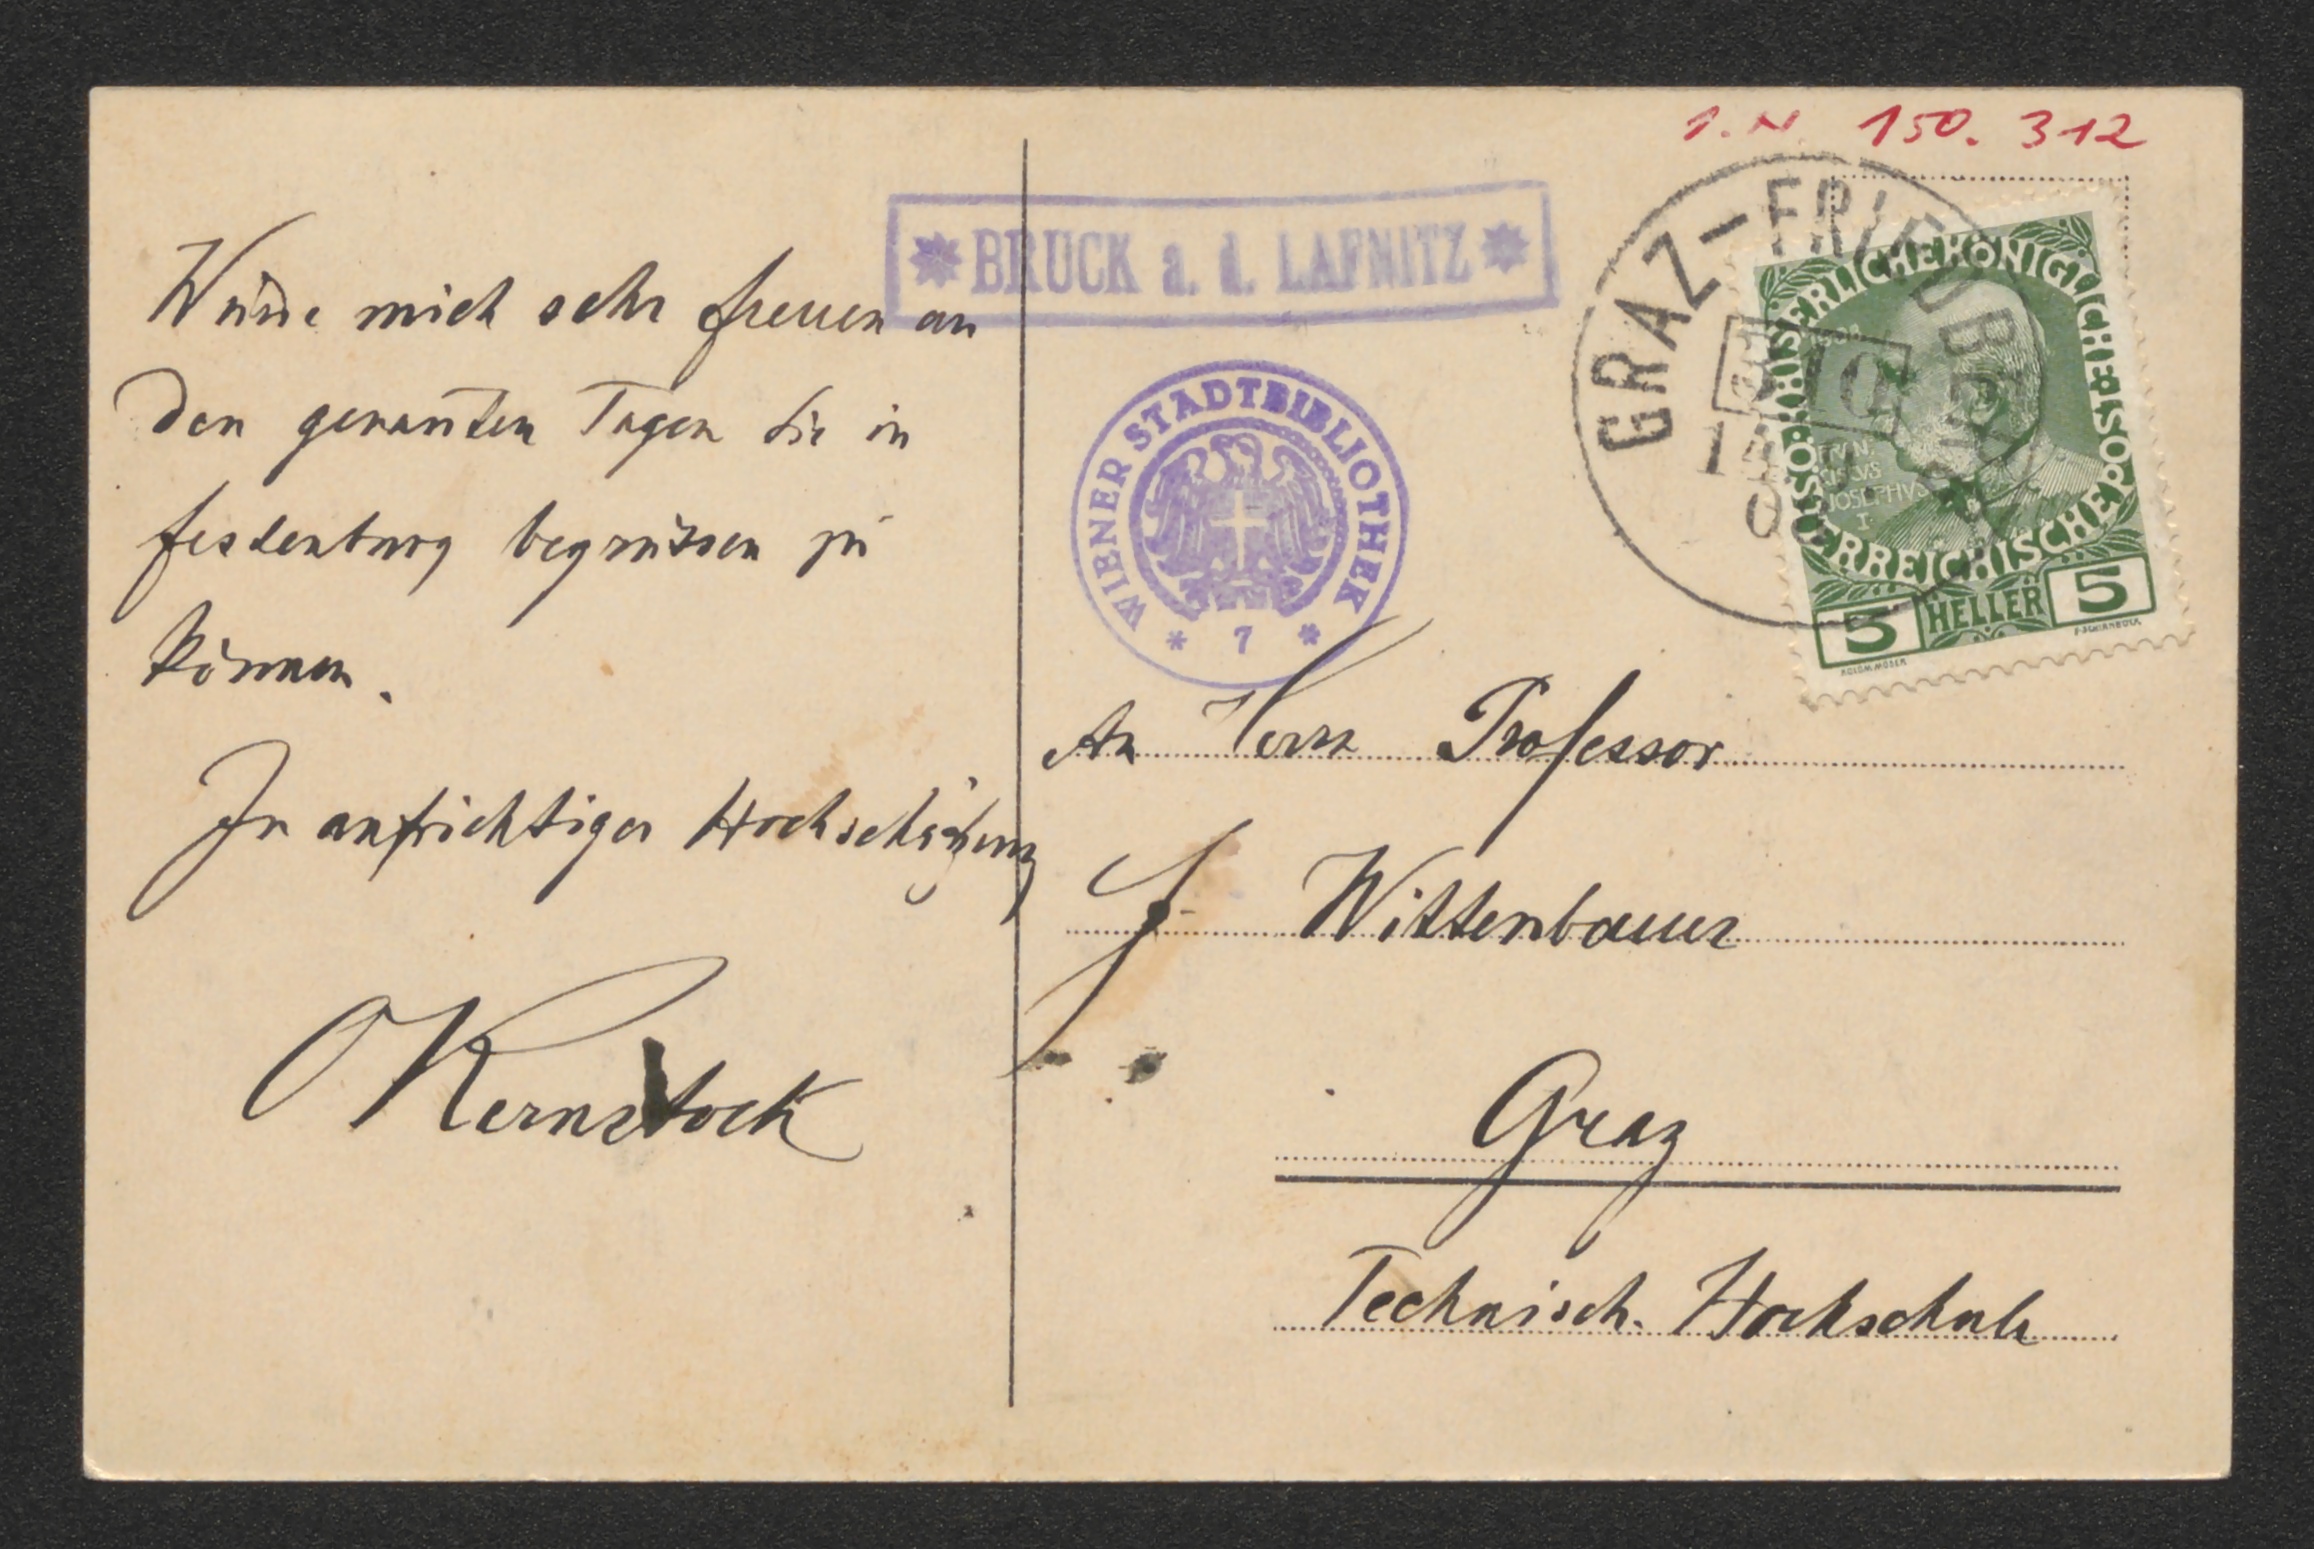 Würde mich sehr freuen an
den genannten Tagen Sie in
Festenburg begrüssen zu
können.
In aufrichtiger Hochschätzung
OKernstock
I.N. 150.312
* BRUCK a. d. LAFNITZ *
WIENER STADTBIBLIOTHEK
* 7 *
GRAZ-FRIEDBERG
KAISERLICHE KÖNIGLICHE ÖSTERREICHISCHE POST
5 HELLER 5
An Herrn Professor
F Wittenbauer
Graz
Technisch. Hochschule